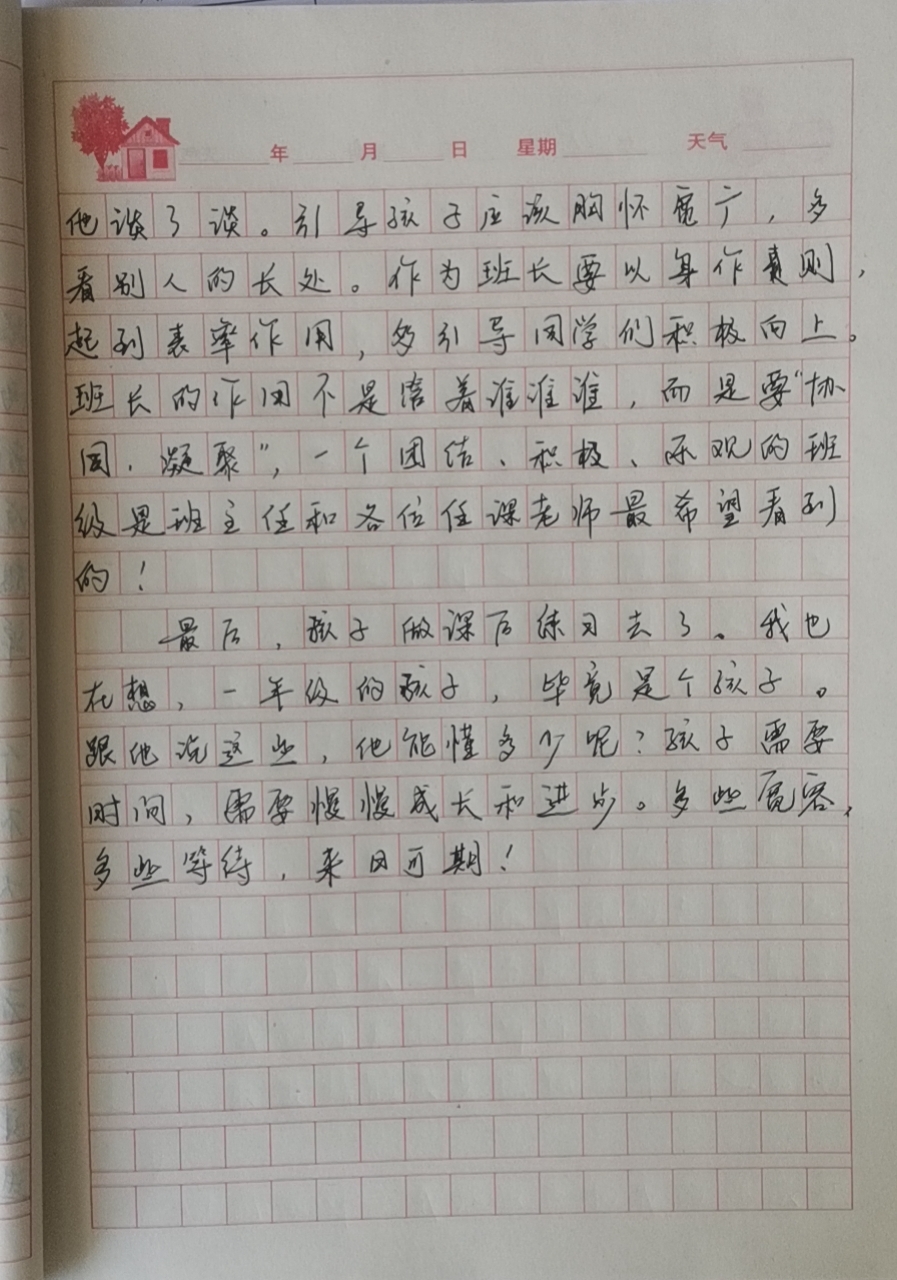 年 月 日 星期 天气
他谈了谈。引导孩子应该胸怀宽广，多
看别人的长处。作为班长要以身作则，
起到表率作用，多引导同学们积极向上。
班长的作用不是管着谁谁谁，而是要“协
同、凝聚”，一个团结、积极、乐观的班
级是班主任和各位任课老师最希望看到
的！
最后，孩子做课后练习去了。我也
在想，一年级的孩子，毕竟是个孩子。
跟他说这些，他能懂多少呢？孩子需要
时间，需要慢慢成长和进步。多些宽容，
多些等待，来日可期！